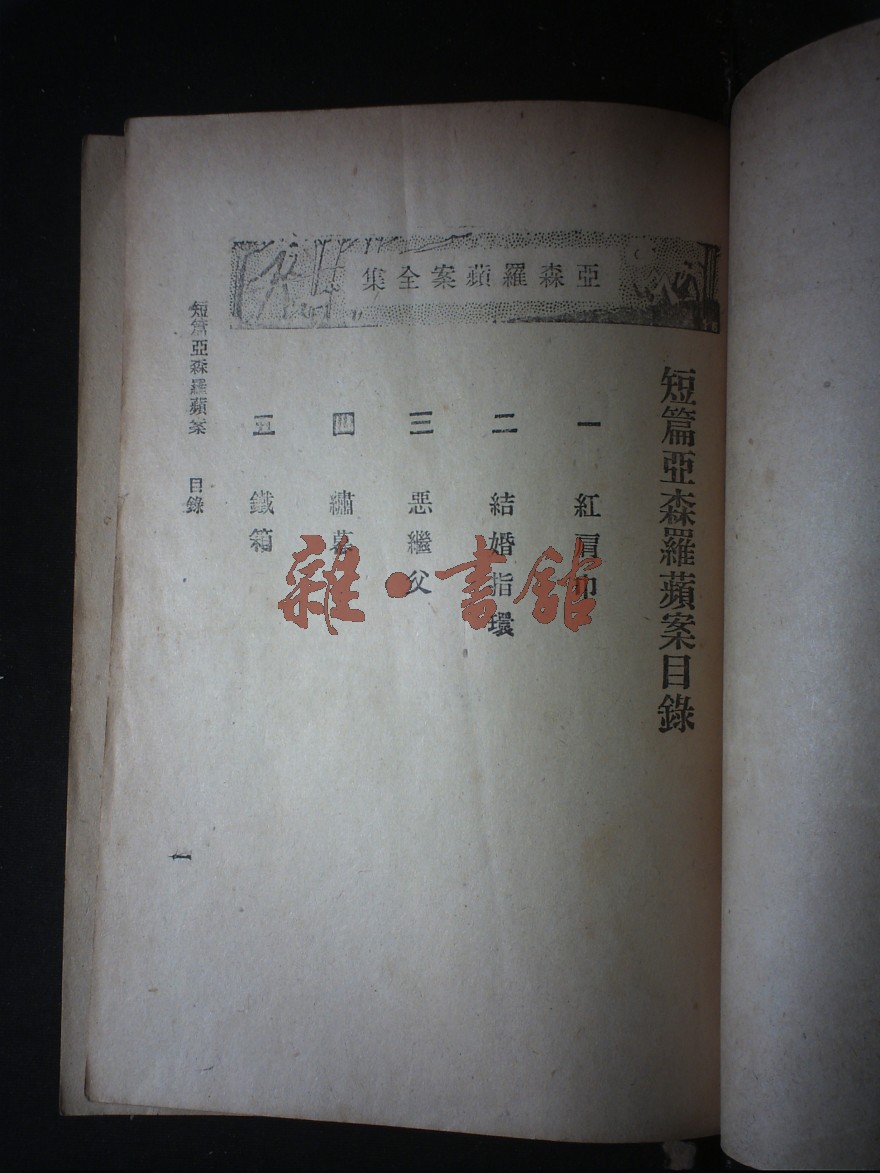 亞森羅蘋案全集
短篇亞森羅蘋案目錄
一 紅肩巾
二 結婚指環
三 惡繼父
四 繡幕
五 鐵箱
短篇亞森羅蘋案 目錄
一
雜·書館